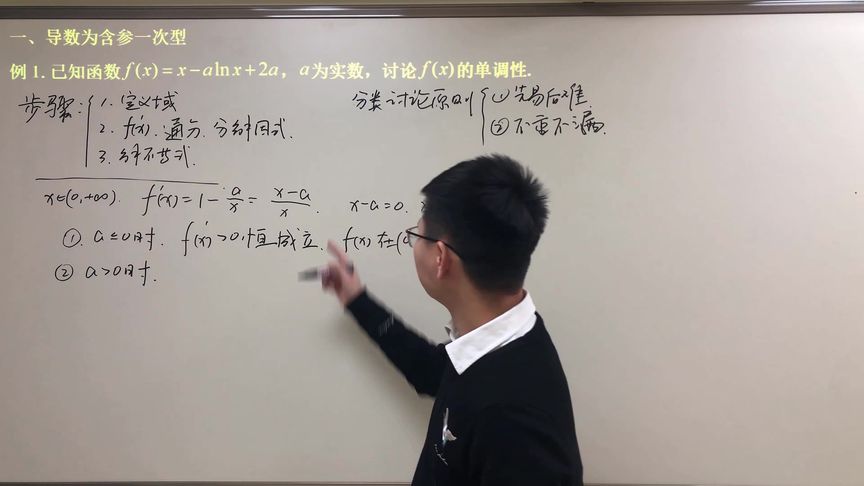 一、导数为含参一次型
例 1. 已知函数 f(x)=x−alnx+2a，a为实数，讨论f(x)的单调性.
步骤: 1. 定义域
2. f'(x). 通分. 分解因式.
3. 解不等式.
分类讨论原则 ① 先易后难.
② 不重不漏.
x∈(0,+∞). f'(x)=1−a/x=(x−a)/x. x−a=0.
①. a≤0时. f'(x)>0恒成立. f(x)在(0
② a>0时.